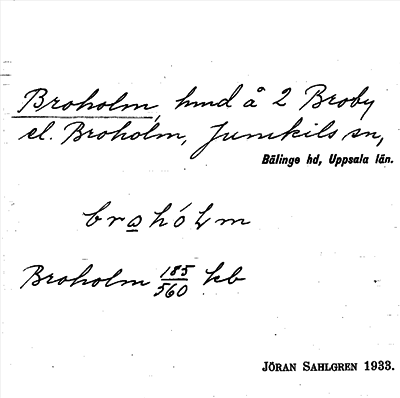 Broholm, hmd å 2 Broby
el. Broholm, Jumkils sn,
Bälinge hd, Uppsala län.
brohólm
Broholm 185/560 kb
JÖRAN SAHLGREN 1933.